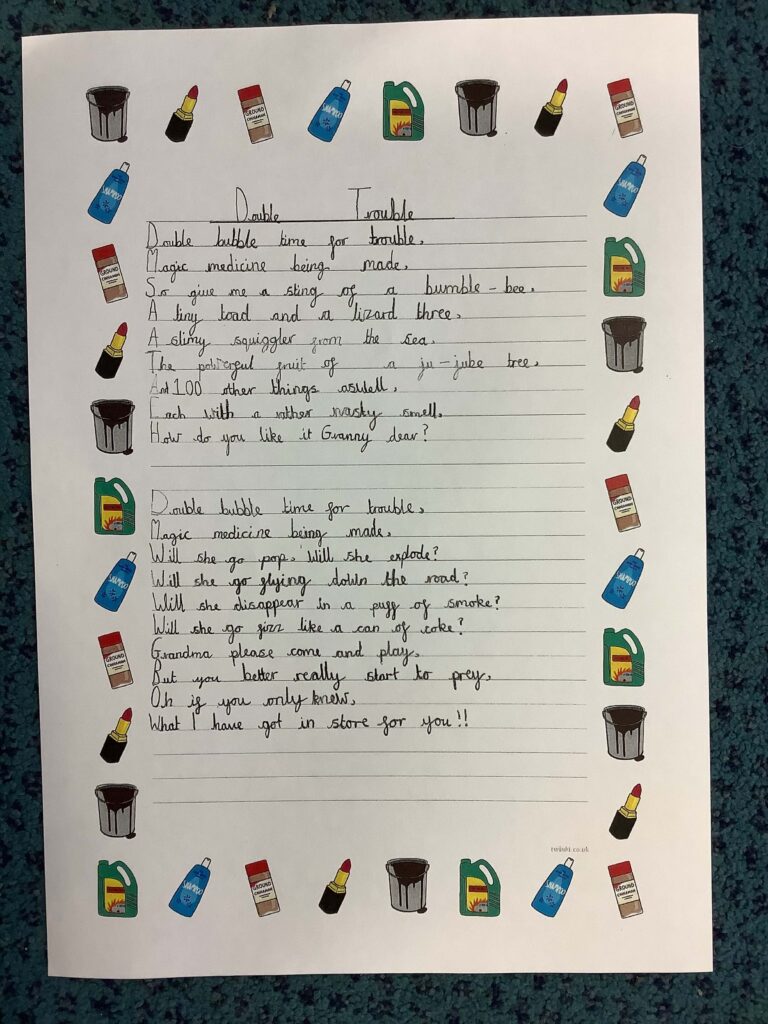 Double Trouble
Double bubble time for trouble,
Magic medicine being made,
So give me a sting of a bumble-bee,
A tiny toad and a lizard three,
A slimy squiggler from the sea,
The powerful fruit of a ju-jube tree,
And 100 other things aswell,
Each with a rather nasty smell.
How do you like it Granny dear?
Double bubble time for trouble,
Magic medicine being made,
Will she go pop, Will she explode?
Will she go flying down the road?
Will she disappear in a puff of smoke?
Will she go fizz like a can of coke?
Grandma please come and play,
But you better really start to prey,
Oh if you only knew,
What I have got in store for you!!
twinkl.co.uk
GROUND CINNAMON
SHAMPOO